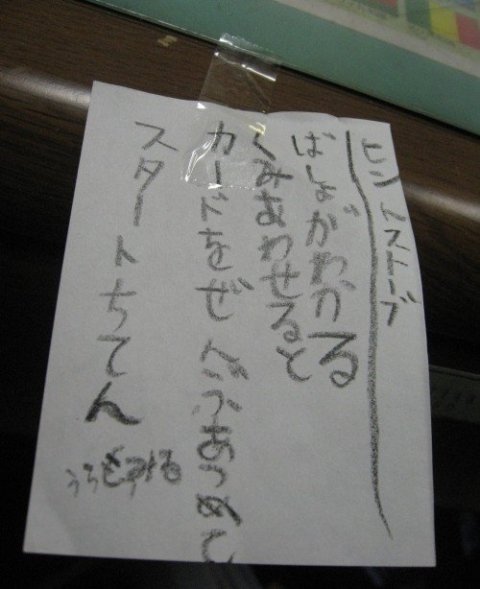 スタートちてん
カードをぜんぶあつめて
くみあわせると
ばしょがわかる
ヒントストーブ